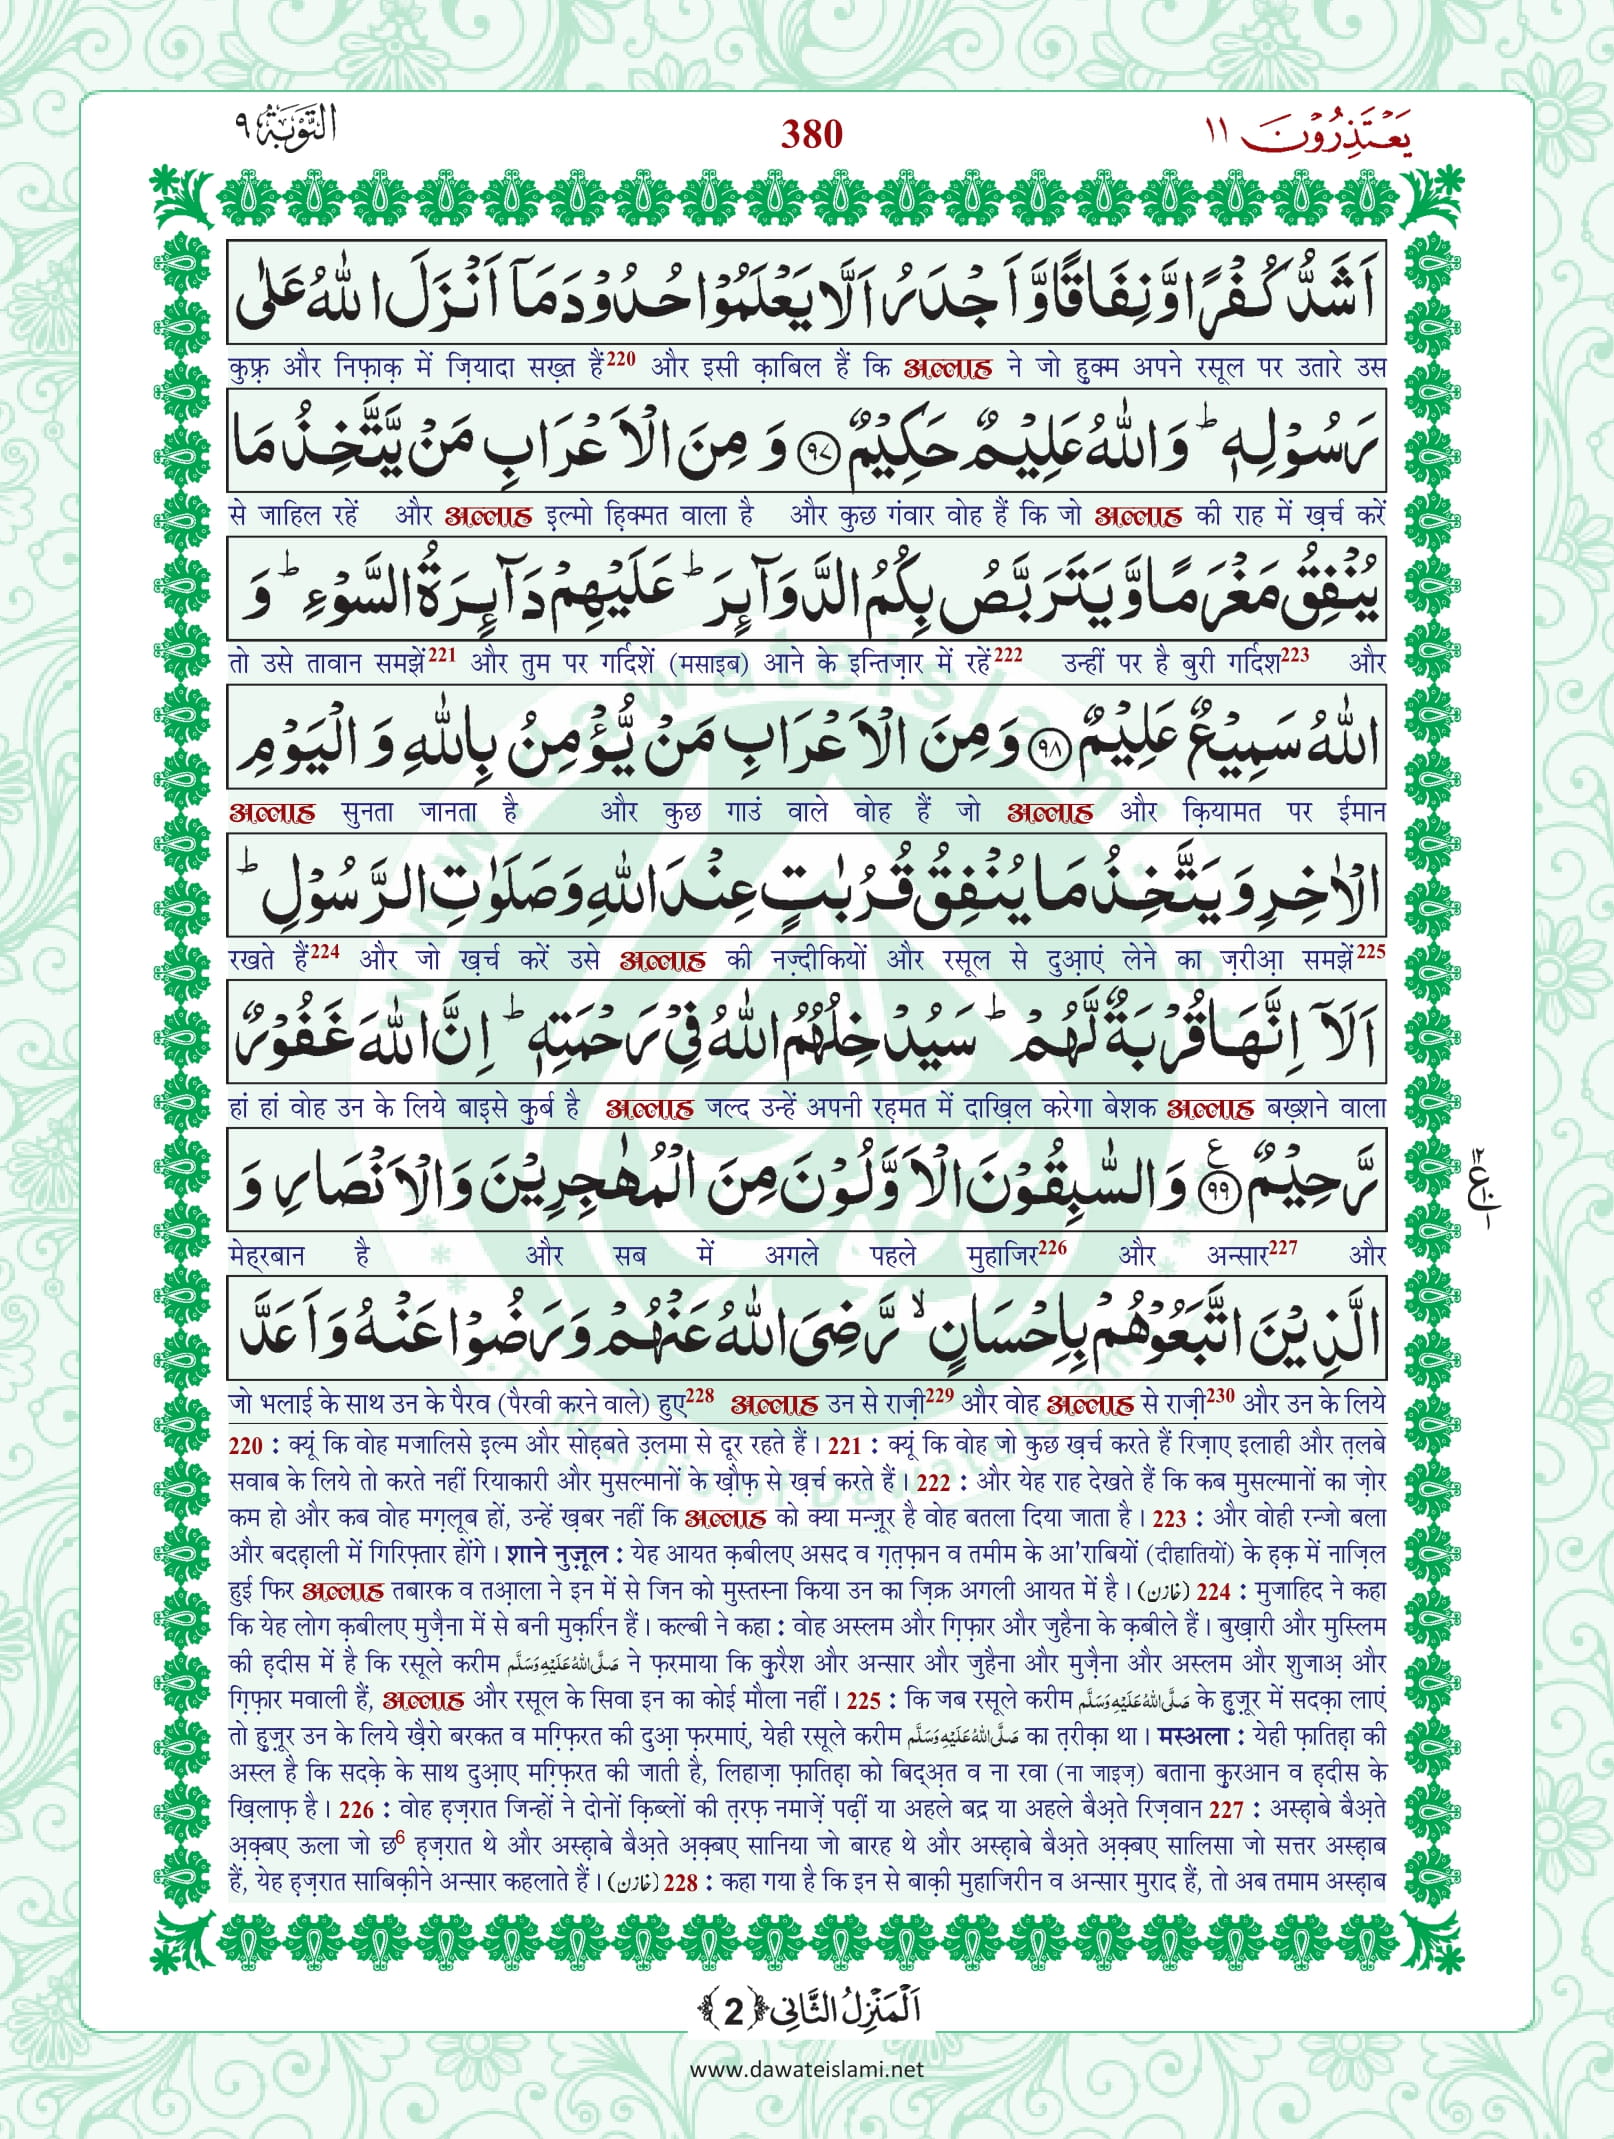 يَعْتَذِرُوْنَ ١١
380
التَّوْبَة ٩
اَشَدُّ كُفْرًا وَّ نِفَاقًا وَّ اَجْدَرُ اَلَّا یَعْلَمُوْا حُدُوْدَ مَاۤ اَنْزَلَ اللّٰهُ عَلٰى
कुफ़्र और निफ़ाक़ में ज़ियादा सख़्त हैं220 और इसी क़ाबिल हैं कि अल्लाह ने जो हुक्म अपने रसूल पर उतारे उस
رَسُوْلِهٖؕ وَ اللّٰهُ عَلِیْمٌ حَكِیْمٌ ﴿۹۷﴾ وَ مِنَ الْاَعْرَابِ مَنْ یَّتَّخِذُ مَا
से जाहिल रहें और अल्लाह इल्मो हिक्मत वाला है और कुछ गंवार वोह हैं कि जो अल्लाह की राह में ख़र्च करें
یُنْفِقُ مَغْرَمًا وَّ یَتَرَبَّصُ بِكُمُ الدَّوَآىٕرَؕ عَلَیْهِمْ دَآىٕرَةُ السَّوْءِؕ وَ
तो उसे तावान समझें221 और तुम पर गर्दिशें (मसाइब) आने के इन्तिज़ार में रहें222 उन्हीं पर है बुरी गर्दिश223 और
اللّٰهُ سَمِیْعٌ عَلِیْمٌ ﴿۹۸﴾ وَ مِنَ الْاَعْرَابِ مَنْ یُّؤْمِنُ بِاللّٰهِ وَ الْیَوْمِ
अल्लाह सुनता जानता है और कुछ गाउं वाले वोह हैं जो अल्लाह और क़ियामत पर ईमान
الْاٰخِرِ وَ یَتَّخِذُ مَا یُنْفِقُ قُرُبٰتٍ عِنْدَ اللّٰهِ وَ صَلَوٰتِ الرَّسُوْلِؕ
रखते हैं224 और जो ख़र्च करें उसे अल्लाह की नज़्दीकियों और रसूल से दुआ़एं लेने का ज़रीआ़ समझें225
اَلَاۤ اِنَّهَا قُرْبَةٌ لَّهُمْؕ سَیُدْخِلُهُمُ اللّٰهُ فِیْ رَحْمَتِهٖؕ اِنَّ اللّٰهَ غَفُوْرٌ
हां हां वोह उन के लिये बाइसे क़ुर्ब है अल्लाह जल्द उन्हें अपनी रह़मत में दाख़िल करेगा बेशक अल्लाह बख़्शने वाला
رَّحِیْمٌ ﴿۹۹﴾ ع وَ السّٰبِقُوْنَ الْاَوَّلُوْنَ مِنَ الْمُهٰجِرِیْنَ وَ الْاَنْصَارِ وَ
मेह्‌रबान है और सब में अगले पहले मुहाजिर226 और अन्सार227 और
الَّذِیْنَ اتَّبَعُوْهُمْ بِاِحْسَانٍۙ رَّضِیَ اللّٰهُ عَنْهُمْ وَ رَضُوْا عَنْهُ وَ اَعَدَّ
जो भलाई के साथ उन के पैरव (पैरवी करने वाले) हुए228 अल्लाह उन से राज़ी229 और वोह अल्लाह से राज़ी230 और उन के लिये
220 : क्यूं कि वोह मजालिसे इल्म और सोह़बते उ़लमा से दूर रहते हैं। 221 : क्यूं कि वोह जो कुछ ख़र्च करते हैं रिज़ाए इलाही और त़लबे
सवाब के लिये तो करते नहीं रियाकारी और मुसल्मानों के ख़ौफ़ से ख़र्च करते हैं। 222 : और येह राह देखते हैं कि कब मुसल्मानों का ज़ोर
कम हो और कब वोह मग़्लूब हों, उन्हें ख़बर नहीं कि अल्लाह को क्या मन्ज़ूर है वोह बतला दिया जाता है। 223 : और वोही रन्जो बला
और बदह़ाली में गिरिफ़्तार होंगे। शाने नुज़ूल : येह आयत क़बीलए असद व ग़त़फ़ान व तमीम के आ'राबियों (दीहातियों) के ह़क़ में नाज़िल
हुई फिर अल्लाह तबारक व तआ़ला ने इन में से जिन को मुस्तस्ना किया उन का ज़िक्र अगली आयत में है। (خازن) 224 : मुजाहिद ने कहा
कि येह लोग क़बीलए मुज़ैना में से बनी मुक़र्रिन हैं। कल्बी ने कहा : वोह अस्लम और ग़िफ़ार और जुहैना के क़बीले हैं। बुख़ारी और मुस्लिम
की ह़दीस में है कि रसूले करीम صَلَّى اللهُ عَلَيْهِ وَسَلَّم ने फ़रमाया कि क़ुरैश और अन्सार और जुहैना और मुज़ैना और अस्लम और शुजाअ़ और
ग़िफ़ार मवाली हैं, अल्लाह और रसूल के सिवा इन का कोई मौला नहीं। 225 : कि जब रसूले करीम صَلَّى اللهُ عَلَيْهِ وَسَلَّم के हु़ज़ूर में सदक़ा लाएं
तो हु़ज़ूर उन के लिये ख़ैरो बरकत व मग़्फ़िरत की दुआ़ फ़रमाएं, येही रसूले करीम صَلَّى اللهُ عَلَيْهِ وَسَلَّم का त़रीक़ा था। मस्अला : येही फ़ातिह़ा की
अस्ल है कि सदक़े के साथ दुआ़ए मग़्फ़िरत की जाती है, लिहाज़ा फ़ातिह़ा को बिद्अ़त व ना रवा (ना जाइज़) बताना क़ुरआन व ह़दीस के
ख़िलाफ़ है। 226 : वोह ह़ज़रात जिन्हों ने दोनों क़िब्लों की त़रफ़ नमाज़ें पढ़ीं या अहले बद्र या अहले बैअ़ते रिज़वान 227 : अस्ह़ाबे बैअ़ते
अ़क़्बए ऊला जो छ6 ह़ज़रात थे और अस्ह़ाबे बैअ़ते अ़क़्बए सानिया जो बारह थे और अस्ह़ाबे बैअ़ते अ़क़्बए सालिसा जो सत्तर अस्ह़ाब
हैं, येह ह़ज़रात साबिक़ीने अन्सार कहलाते हैं। (خازن) 228 : कहा गया है कि इन से बाक़ी मुहाजिरीन व अन्सार मुराद हैं, तो अब तमाम अस्ह़ाब
اَلْمَنْزِلُ الثَّانِی ﴿2﴾
www.dawateislami.net